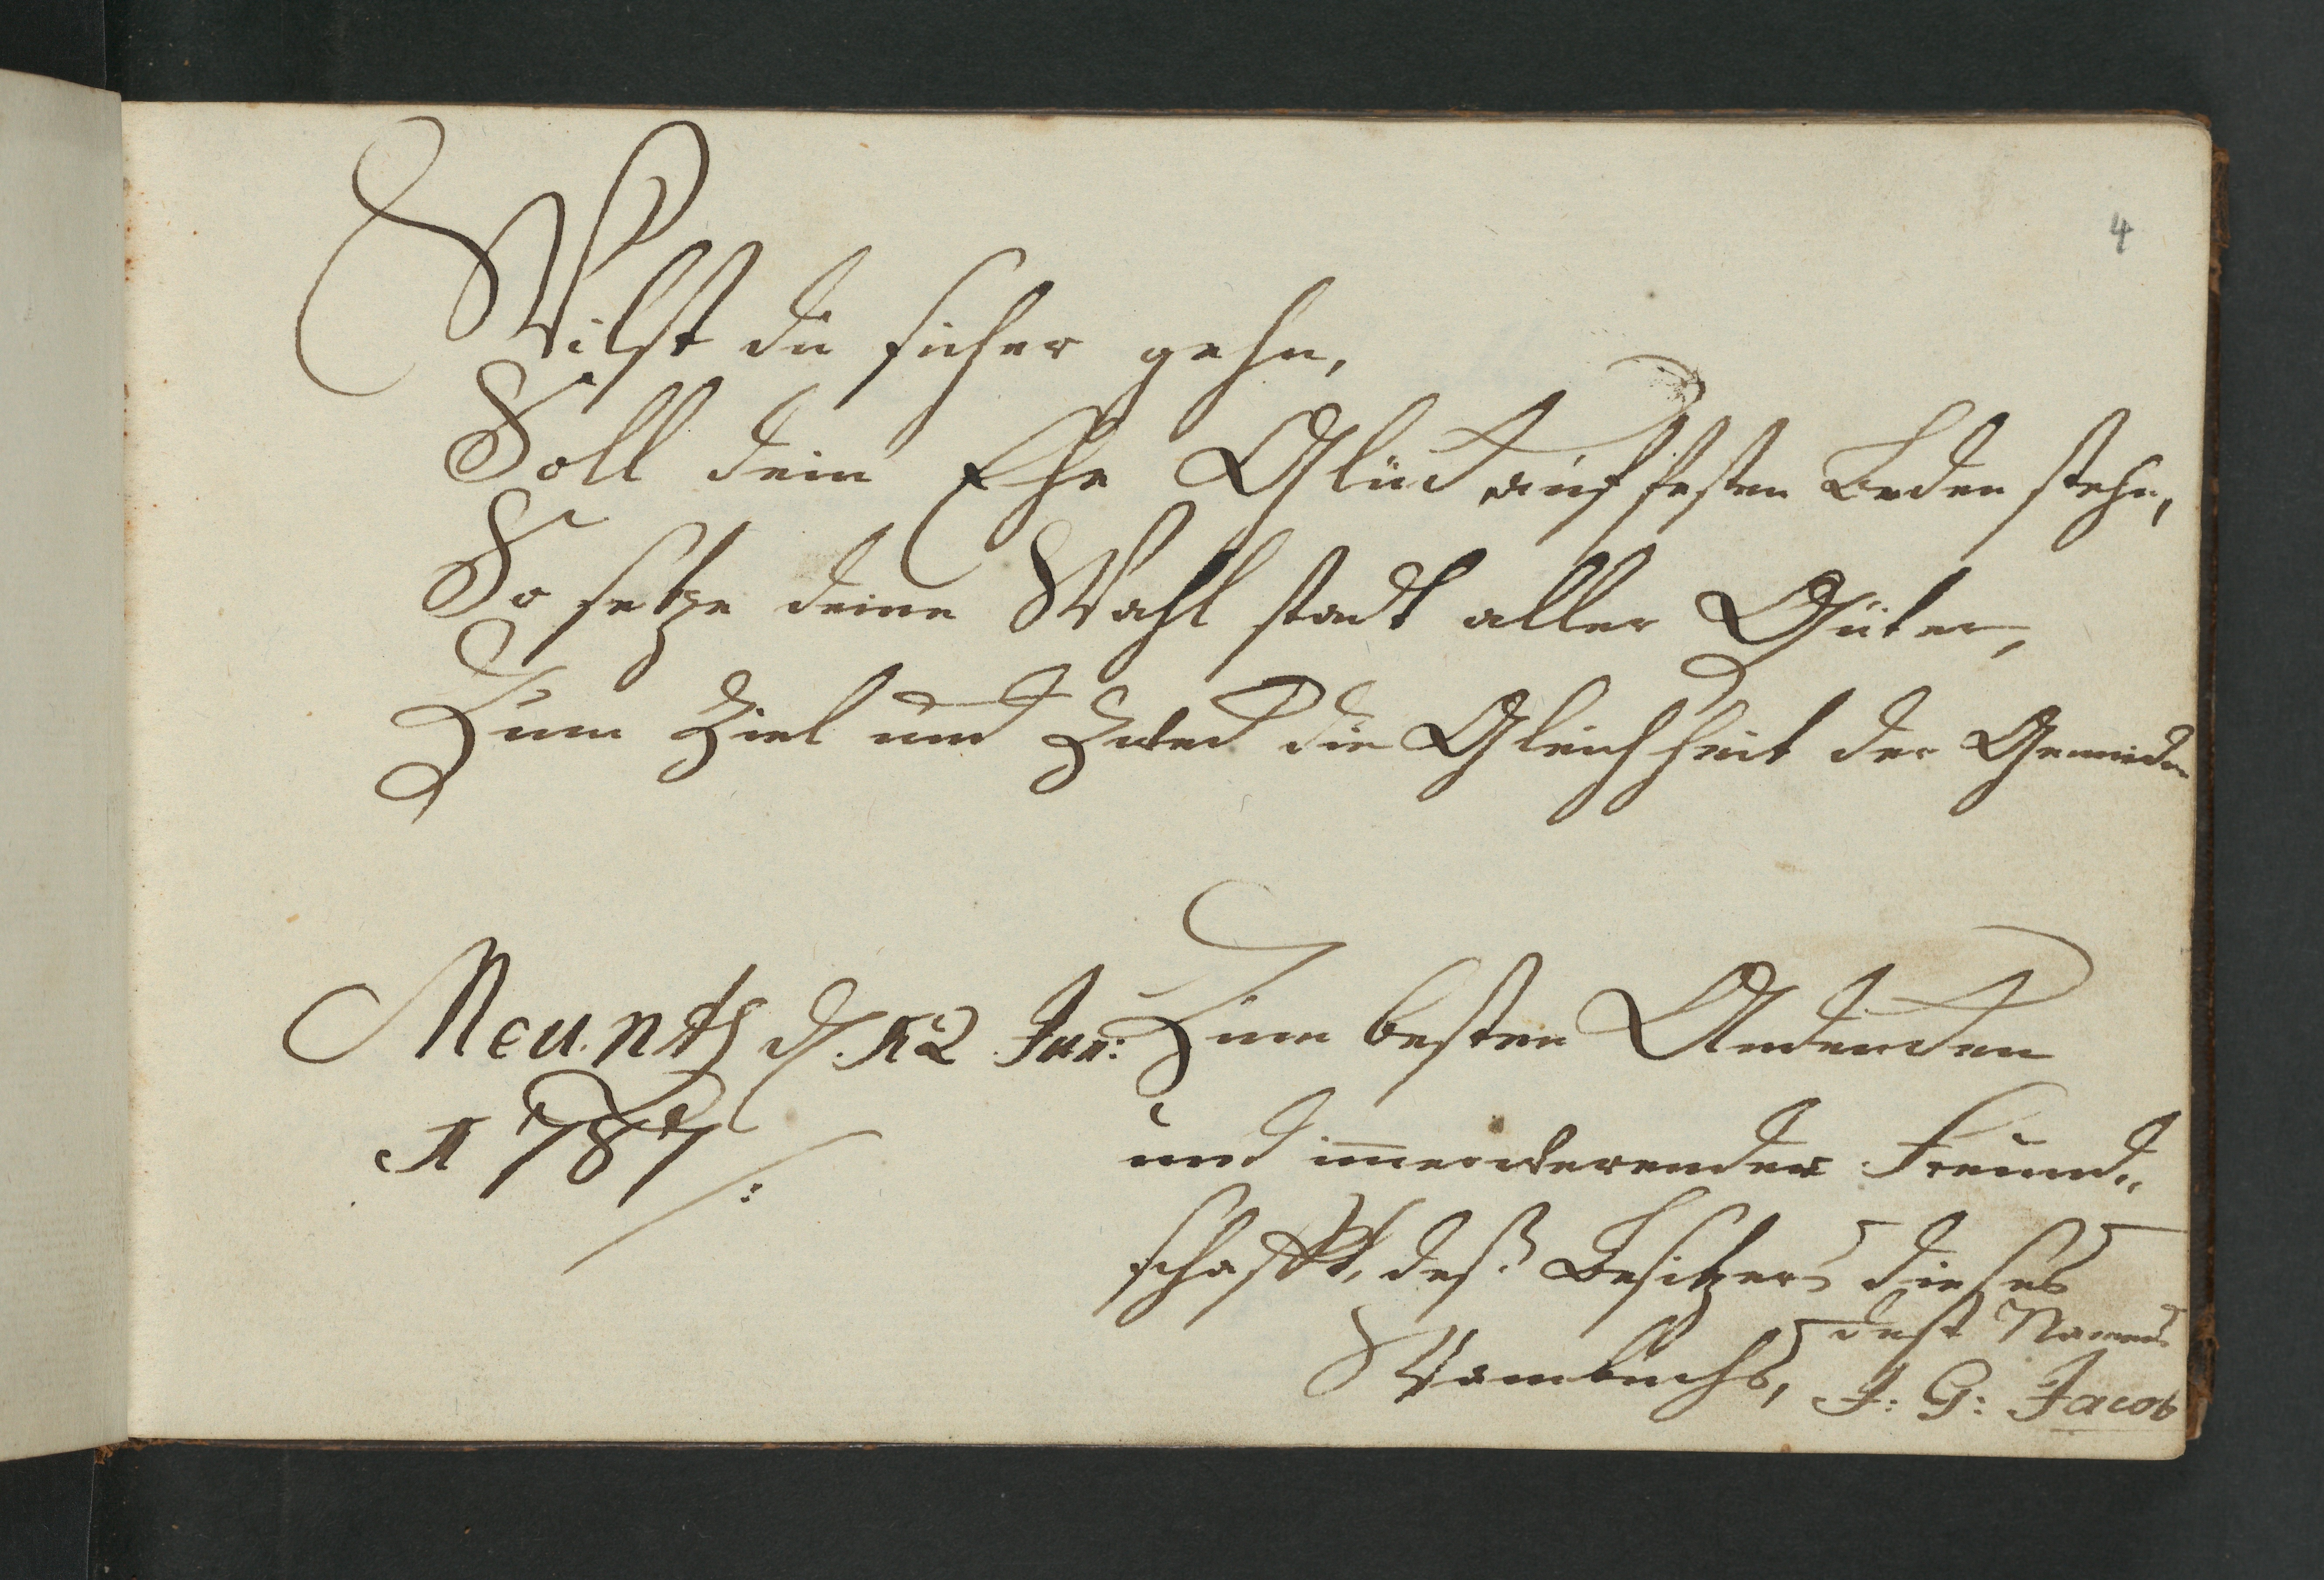 4
Wilst du sicher gehn,
Soll dein Ehe Glück auf festen Boden stehn,
So setze deine Wahl stadt aller Güter,
Zum Ziel und Zweck die Gleichheit der Gemüder
d. 12 Jun:
1787
Zum besten Andencken
und immerwerender Freund„
schafft, deß Besitzers dieses
Stambuchs,
J: G: Jacob